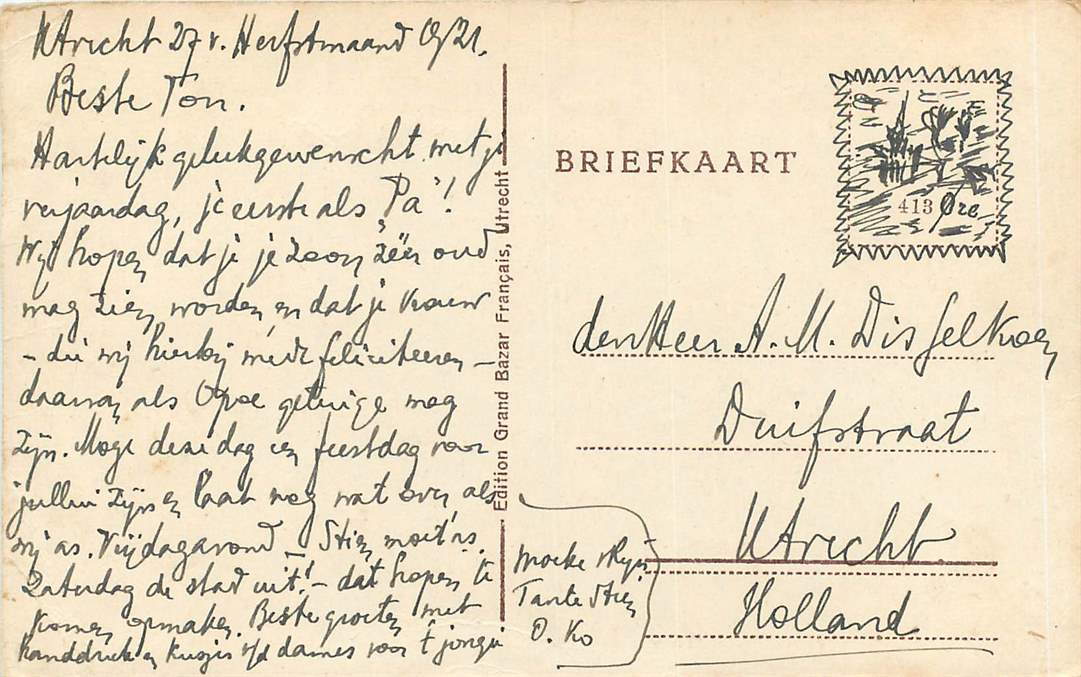 Utrecht 27 v. Herfstmaand 0/21.
Beste Ton.
Hartelijk gelukgewenscht met je
verjaardag, je eerste als „Pa"!
Wij hopen dat je je zoon zéér oud
mag zien worden en dat je vrouw
- die wij hierbij mede feliciteeren -
daarvan als Opoe getuige mag
zijn. Moge deze dag een feestdag voor
jullie zijn en laat nog wat over, als
wij as. Vrijdagavond - Stien moet as.
Zaterdag de stad uit! - dat hopen te
komen opmaken. Beste groeten met
handdruk en kusjes v/d dames voor 't jongie
Moeke
Tante Stien
O. Ko
Edition Grand Bazar Français, Utrecht
BRIEFKAART
413 Øre
den Heer A. M. Disselkoen
Duifstraat
Utrecht.
Holland